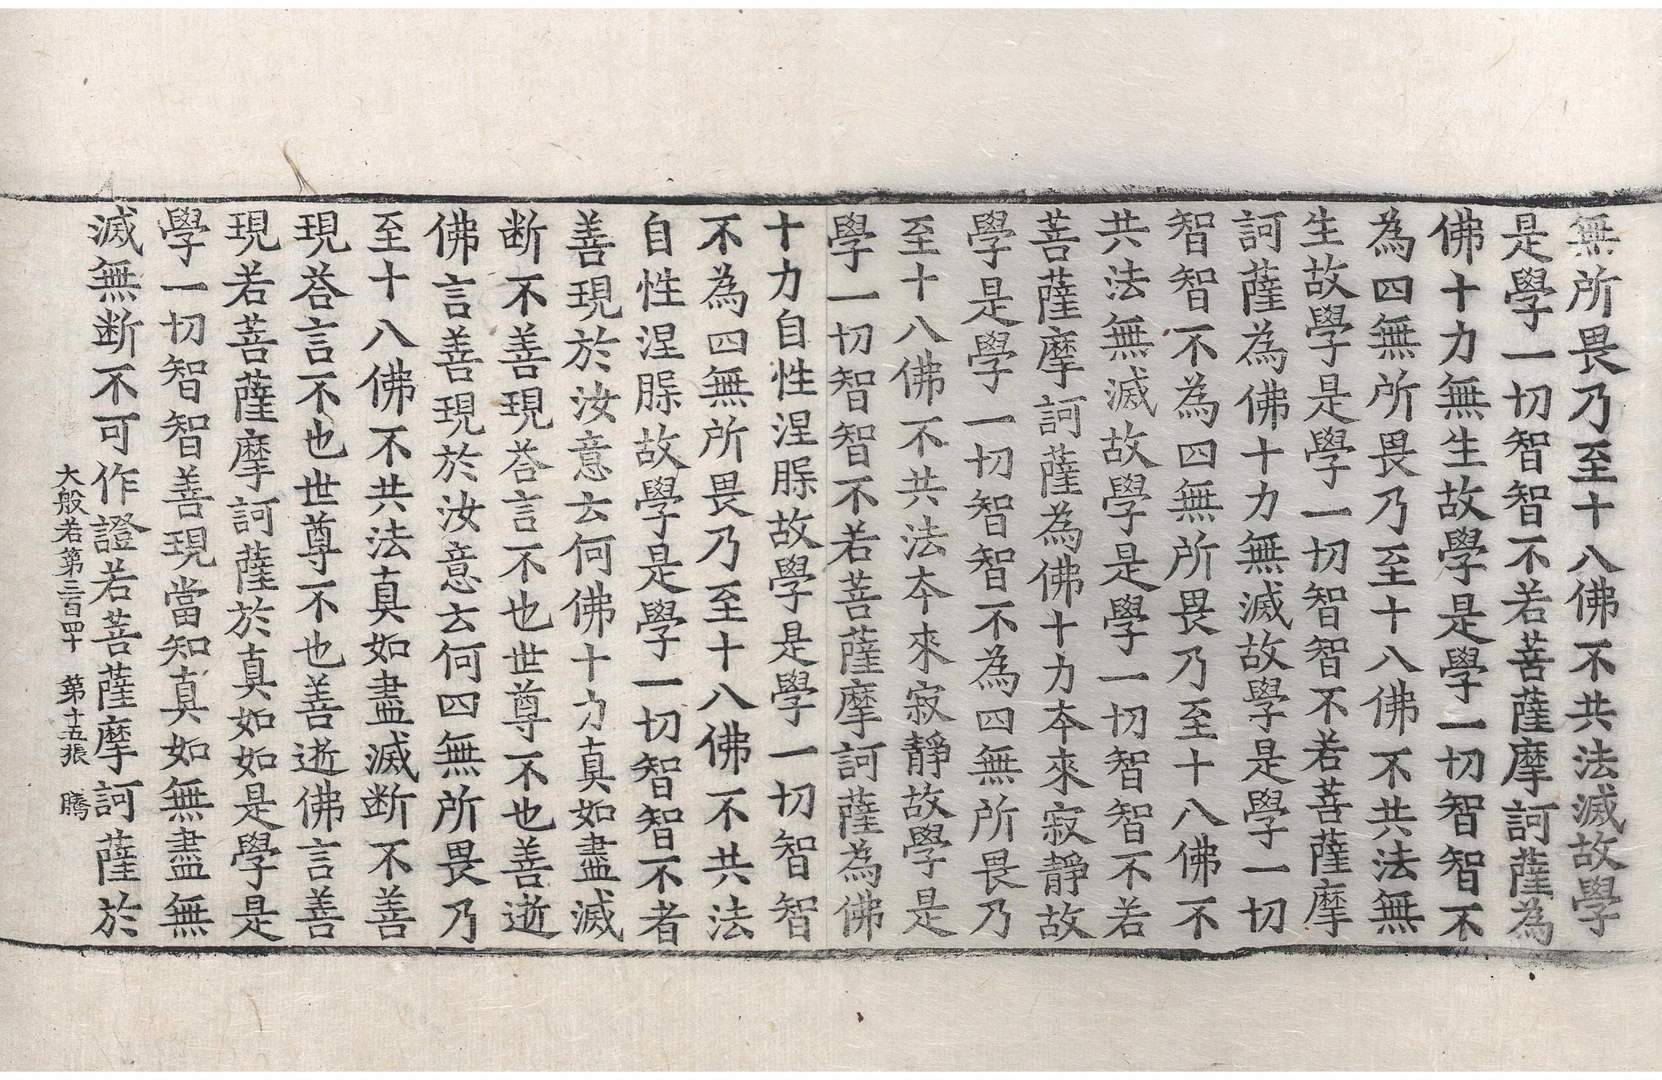 無所畏乃至十八佛不共法滅故學
是學一切智智不若菩薩摩訶薩為
佛十力無生故學是學一切智智不
為四無所畏乃至十八佛不共法無
生故學是學一切智智不若菩薩摩
訶薩為佛十力無滅故學是學一切
智智不為四無所畏乃至十八佛不
共法無滅故學是學一切智智不若
菩薩摩訶薩為佛十力夲來寂靜故
學是學一切智智不為四無所畏乃
至十八佛不共法夲來寂靜故學是
學一切智智不若菩薩摩訶薩為佛
十力自性涅脲故學是學一切智智
不為四無所畏乃至十八佛不共法
自性涅脲故學是學一切智智不者
善現於汝意云何佛十力真如盡滅
断不善現荅言不也世尊不也善逝
佛言善現於汝意云何四無所畏乃
至十八佛不共法真如盡滅断不善
現荅言不也世尊不也善逝佛言善
現若菩薩摩訶薩於真如如是學是
學一切智智善現當知真如無盡無
滅無断不可作證若菩薩摩訶薩於
大般若第三百四十 第十五張 騰